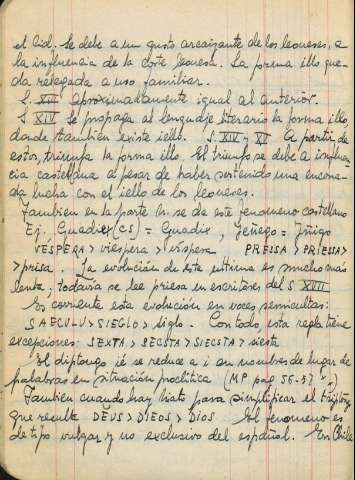 el Cid. Se debe a un gusto arcaizante de los leoneses, a
la influencia de la corte leonesa. La forma illo que-
da relegada a uso familiar.
S. XIII Aproximadamente igual al anterior.
S. XIV Se propaga al lenguaje literario la forma illo,
donde tambien existe iello. S. XIV y XV A partir de
estos, triunfa la forma illo. El triunfo se debe a influen
cia castellana a pesar de haber sostenido una encona-
da lucha con el iello de los leoneses.
Tambien en la parte N. se da este fenomeno castellano
Ej. Guadiex (CS) = Guadix,
VÉSPERA > viéspera > víspera PRESSA > PRIESSA >
> prisa. La evolución de esta ultima es mucho más
lenta; todavía se lee priesa en escritores del S XVII
Es corriente esta evolución en voces semicultas:
SAECULU > SIEGLO > siglo. Con todo, esta regla tiene
excepciones: SEXTA > SECSTA > SIECSTA > siesta
El diptongo ié se reduce a i en nombres de lugar de
palabras en situación proclítica (MP pag 56-57)
Tambien cuando hay hiato para simplificar el triptongo
que resulta DEUS > DIEOS > DIOS El fenomeno es
de tipo vulgar y no exclusivo del español. En Chile